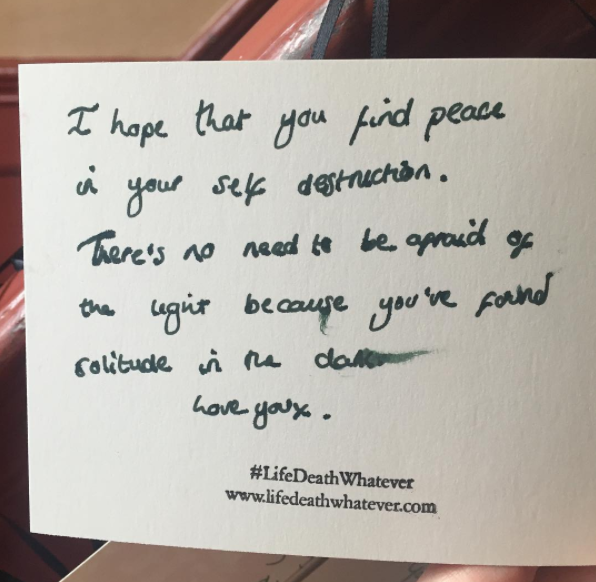 I hope that you find peace
in your self destruction.
There's no need to be afraid of
the light because you've found
solitude in the dark
Love you x.
#LifeDeathWhatever
www.lifedeathwhatever.com